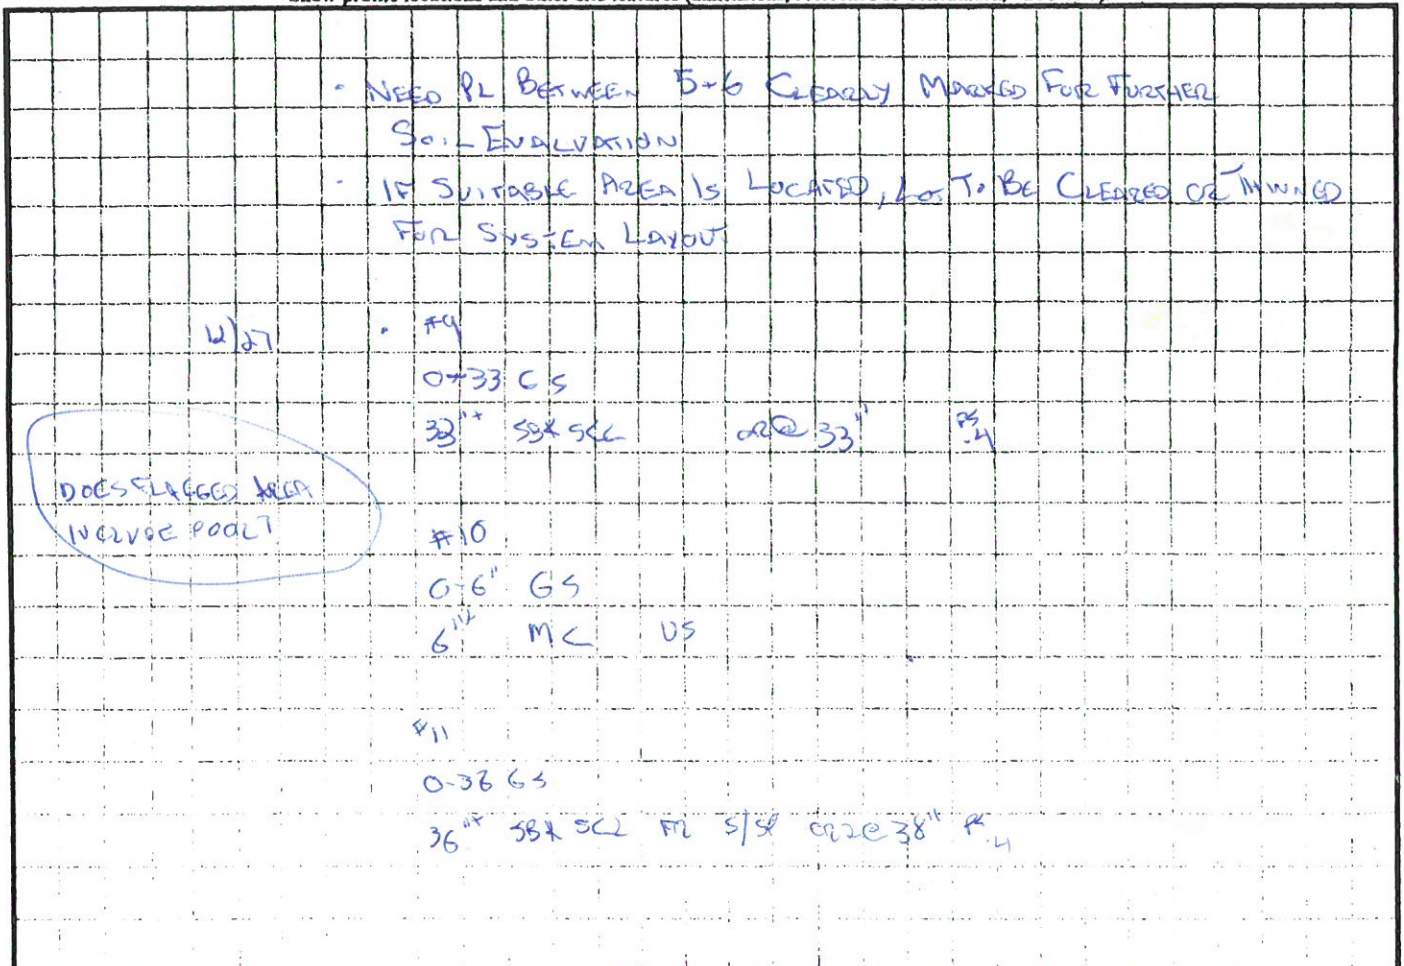 · NEED PL BETWEEN 5+6 CLEARLY MARKED FOR FURTHER
SOIL EVALUATION
· IF SUITABLE AREA IS LOCATED, LOT TO BE CLEARED OR THINNED
FOR SYSTEM LAYOUT
12/27 · #9
0-33 GS
33"+ SBK SCL CR2@ 33" PS .4
DOES FLAGGED AREA
INCLUDE POOL?
#10
0-6" GS
6"+ MC US
#11
0-36 GS
36"+ SBK SCL FR S/SP CR2@ 38" PS .4